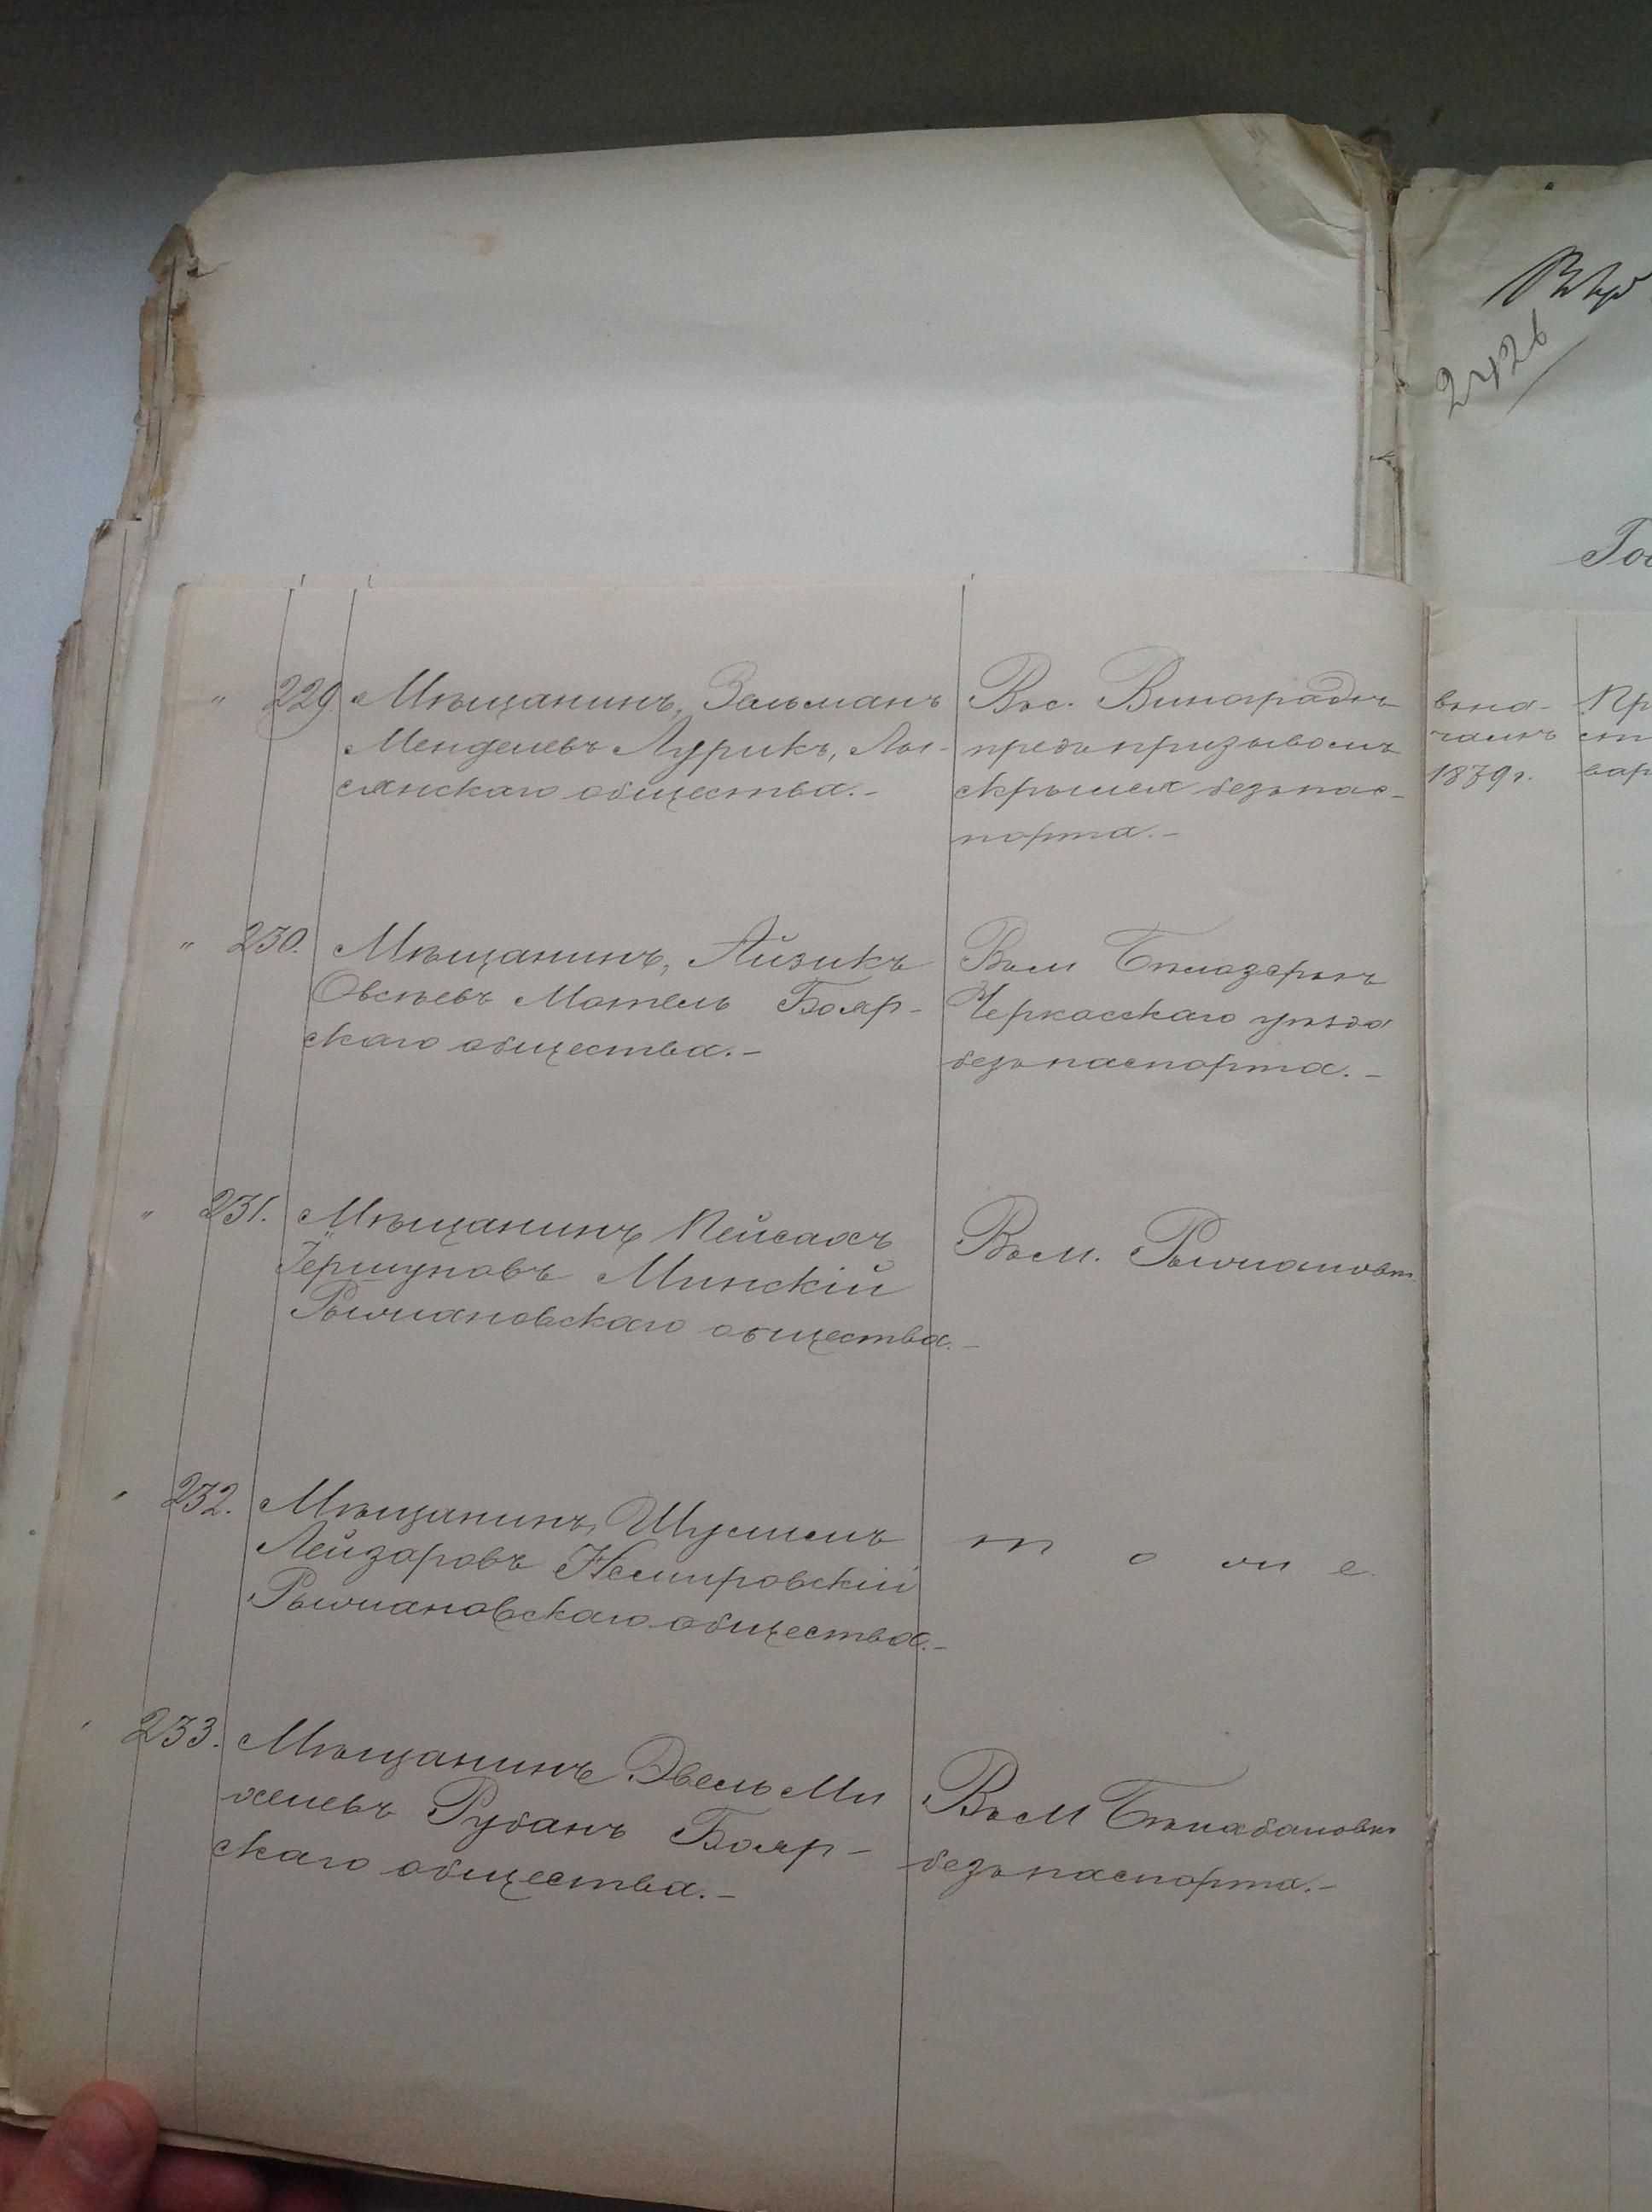 2426
Гос
" 229 Мѣщанинъ, Зельманъ
Менделевъ Лурикъ, Лы-
сянскаго общества.-
Въ с. Виноградѣ
предъ призывомъ
скрылся безъ пас-
порта.-
въ на-
чалѣ
1879 г.
Пр
ст
вар
" 230. Мѣщанинъ, Айзикъ
Овсѣевъ Мотель Бояр-
скаго общества.-
Въ м Бѣлозерьѣ
Черкасскаго уѣзда
безъ паспорта.-
" 231. Мѣщанинъ Пейсахъ
Гершуновъ Минскій
Рыжановскаго общества.-
Въ м. Рыжановкѣ
" 232. Мѣщанинъ, Шулимъ
Лейзаровъ Немировскій
Рыжановскаго общества.-
т о ж е.
" 233. Мѣщанинъ Эвель Ми
хелевъ Рубанъ Бояр-
скаго общества.-
Въ м Бѣлабановкѣ
безъ паспорта.-